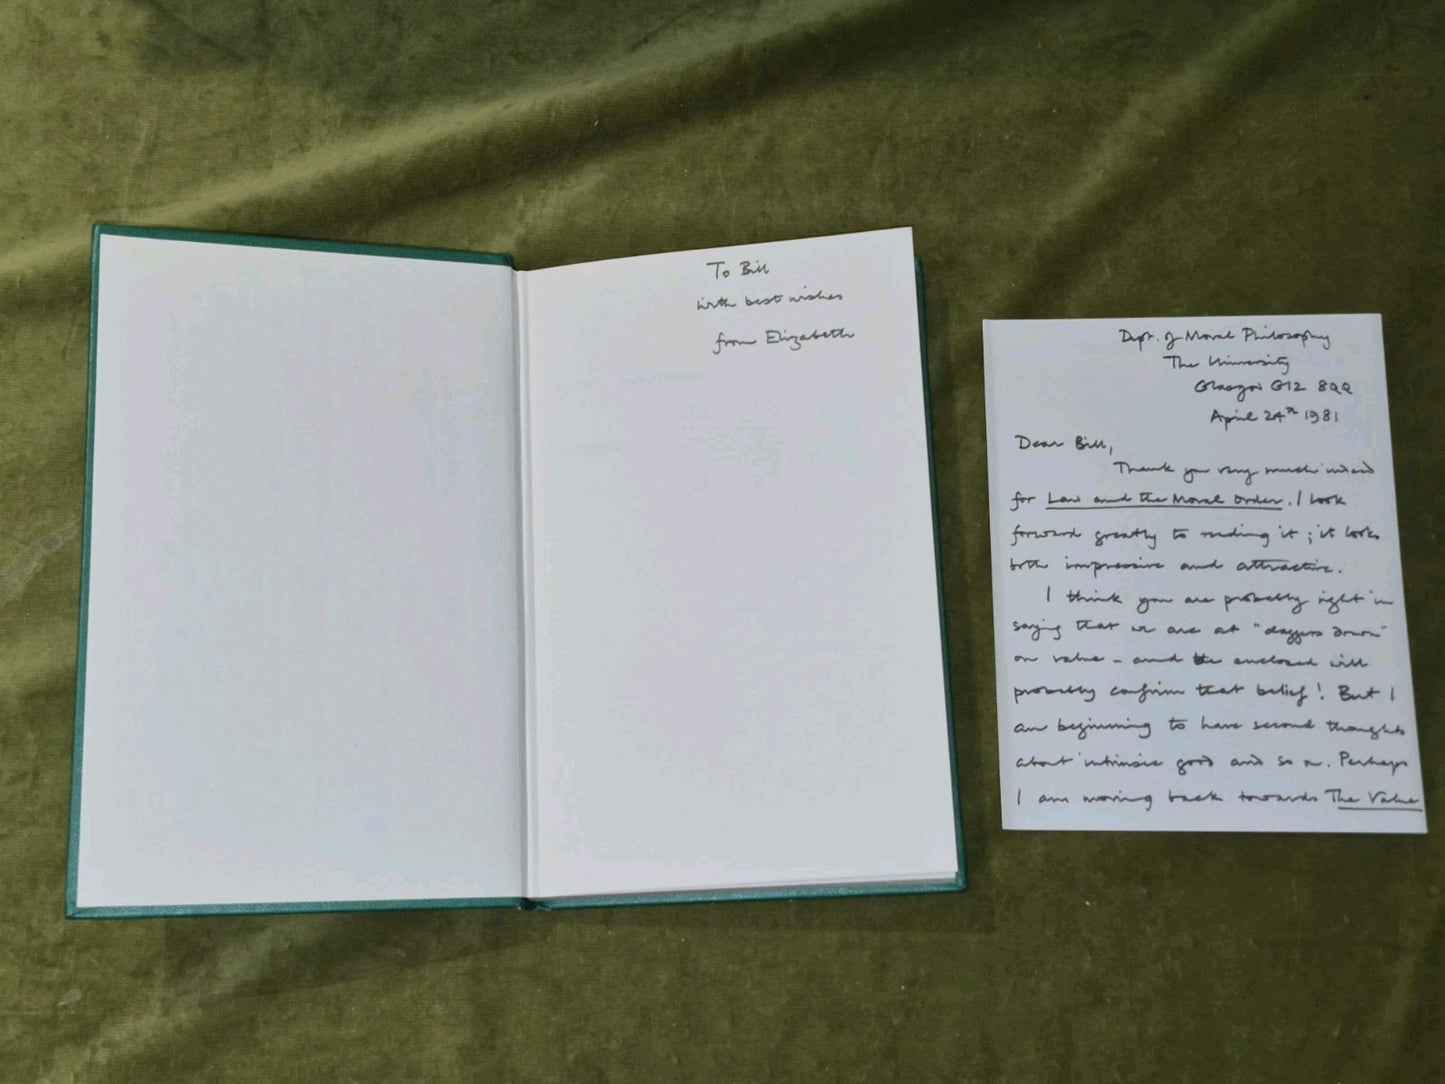 To Bill
with best wishes
from Elizabeth
Dept. of Moral Philosophy
The University
Glasgow G12 8QQ
April 24th 1981
Dear Bill,
Thank you very much indeed
for Law and the Moral Order. I look
forward greatly to reading it; it looks
both impressive and attractive.
I think you are probably right in
saying that we are at "daggers drawn"
on value - and the enclosed will
probably confirm that belief! But I
am beginning to have second thoughts
about intrinsic good and so on. Perhaps
I am moving back towards The Value